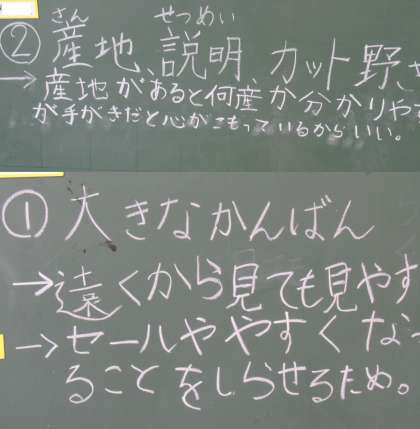 さん せつめい
② 産地、説明 カット野さ
→ 産地があると何産か分かりや
が手がきだと心がこもっているからいい。
① 大きなかんばん
→ 遠くから見ても見やす
→ セールややすくなっ
ることをしらせるため。